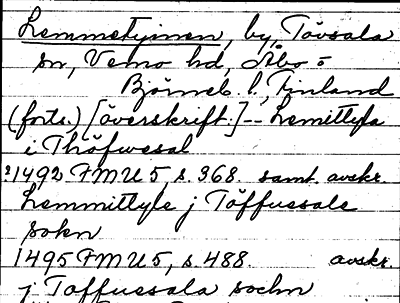 Lemmetyinen, by, Tövsala
sn, Vemo hd, Åbo o
Björneb. l., Finland
(forts.) [överskrift:] -- Lemittyla
i Thöfwesal
21492 FMU 5, s. 368. samt. avskr.
Lemmittyle j Töffuesale
sokn
1495 FMU 5, s. 488. avskr.
j Töffuesala sochn